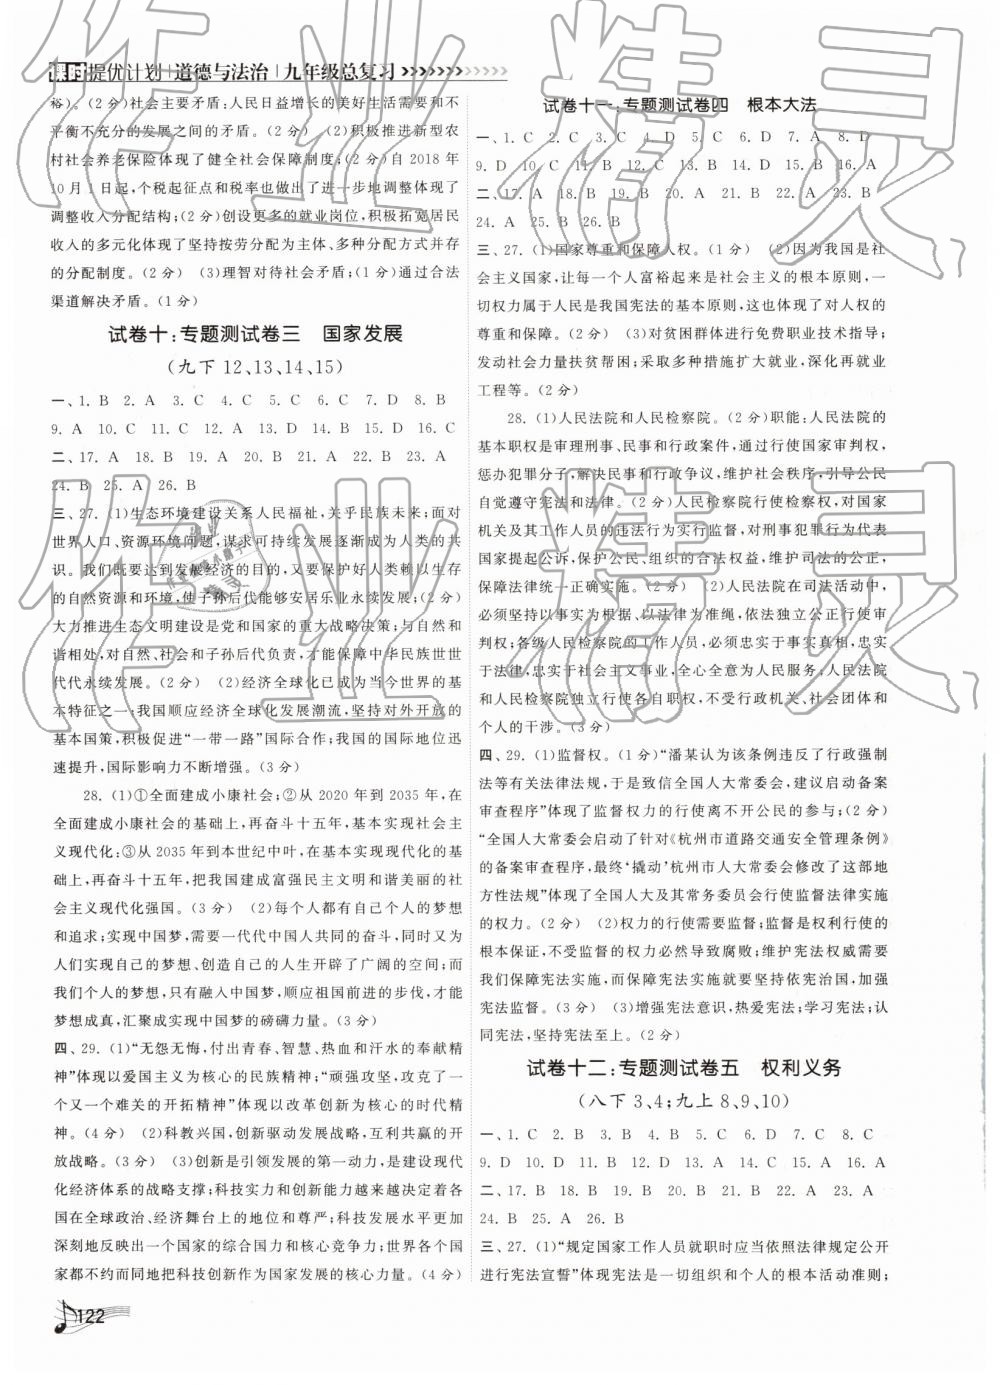 提优计划 道德与法治 九年级总复习
裕)。(2 分)社会主要矛盾:人民日益增长的美好生活需要和不
平衡不充分的发展之间的矛盾。(2 分) (2)积极推进新型农
村社会养老保险体现了健全社会保障制度;(2 分)自 2018 年
10 月 1 日起,个税起征点和税率也做了进一步地调整体现了
调整收入分配结构;(2 分)创设更多的就业岗位,积极拓宽居民
收入的多元化体现了坚持按劳分配为主体、多种分配方式并存
的分配制度。(2 分) (3)理智对待社会矛盾;(1 分)通过合法
渠道解决矛盾。(1 分)
试卷十:专题测试卷三 国家发展
(九下 12、13、14、15)
一、1. B 2. A 3. C 4. C 5. C 6. C 7. D 8. B
9. A 10. C 11. C 12. A 13. D 14. B 15. D 16. C
二、17. A 18. B 19. B 20. A 21. B 22. A 23. A
24. B 25. A 26. B
三、27. (1)生态环境建设关系人民福祉,关乎民族未来;面对
世界人口、资源环境问题,谋求可持续发展逐渐成为人类的共
识。我们既要达到发展经济的目的,又要保护好人类赖以生存
的自然资源和环境,使子孙后代能够安居乐业永续发展;(2 分)
大力推进生态文明建设是党和国家的重大战略决策;与自然和
谐相处,对自然、社会和子孙后代负责,才能保障中华民族世世
代代永续发展。(2 分) (2)经济全球化已成为当今世界的基
本特征之一;我国顺应经济全球化发展潮流,坚持对外开放的
基本国策,积极促进“一带一路”国际合作;我国的国际地位迅
速提升,国际影响力不断增强。(3 分)
28. (1)①全面建成小康社会;②从 2020 年到 2035 年,在
全面建成小康社会的基础上,再奋斗十五年,基本实现社会主
义现代化;③从 2035 年到本世纪中叶,在基本实现现代化的基
础上,再奋斗十五年,把我国建成富强民主文明和谐美丽的社
会主义现代化强国。(3 分) (2)每个人都有自己个人的梦想
和追求;实现中国梦,需要一代代中国人共同的奋斗,同时又为
人们实现自己的梦想、创造自己的人生开辟了广阔的空间;而
我们个人的梦想,只有融入中国梦,顺应祖国前进的步伐,才能
梦想成真,汇聚成实现中国梦的磅礴力量。(3 分)
四、29. (1)“无怨无悔,付出青春、智慧、热血和汗水的奉献精
神”体现以爱国主义为核心的民族精神;“顽强攻坚,攻克了一
个又一个难关的开拓精神”体现以改革创新为核心的时代精
神。(4 分) (2)科教兴国,创新驱动发展战略,互利共赢的开
放战略。(3 分) (3)创新是引领发展的第一动力,是建设现代
化经济体系的战略支撑;科技实力和创新能力越来越决定着各
国在全球政治、经济舞台上的地位和尊严;科技发展水平更加
深刻地反映出一个国家的综合国力和核心竞争力;世界各国
家都不约而同地把科技创新作为国家发展的核心战略。(4 分)
122
试卷十一:专题测试卷四 根本大法
一、1. C 2. C 3. C 4. C 5. D 6. D 7. A 8. D
9. D 10. C 11. B 12. C 13. B 14. D 15. B 16. A
二、17. A 18. B 19. B 20. A 21. A 22. B 23. B
24. A 25. B 26. B
三、27. (1)国家尊重和保障人权。(1 分) (2)因为我国是社
会主义国家,让每一个人富裕起来是社会主义的根本原则,一
切权力属于人民是我国宪法的基本原则,这也体现了对人权的
尊重和保障。(2 分) (3)对贫困群体进行免费职业技术指导;
发动社会力量扶贫帮困;采取多种措施扩大就业,深化再就业
工程等。(2 分)
28. (1)人民法院和人民检察院。(2 分)职能:人民法院的
基本职权是审理刑事、民事和行政案件,通过行使国家审判权,
惩办犯罪分子,解决民事和行政争议,维护社会秩序,引导公民
自觉遵守宪法和法律。(2 分)人民检察院行使检察权,对国家
机关及其工作人员的违法行为实行监督,对刑事犯罪行为代表
国家提起公诉,保护公民、组织的合法权益,维护司法的公正,
保障法律统一正确实施。(2 分) (2)人民法院在司法活动中,
必须坚持以事实为根据,以法律为准绳,依法独立公正行使审
判权;各级人民检察院的工作人员,必须忠实于事实真相,忠实
于法律,忠实于社会主义事业,全心全意为人民服务;人民法院
和人民检察院独立行使各自职权,不受行政机关、社会团体和
个人的干涉。(3 分)
四、29. (1)监督权。(1 分)“潘某认为该条例违反了行政强制
法等有关法律法规,于是致信全国人大常委会,建议启动备案
审查程序”体现了监督权力的行使离不开公民的参与;(2 分)
“全国人大常委会启动了针对《杭州市道路交通安全管理条例》
的备案审查程序,最终‘撬动’杭州市人大常委会修改了这部地
方性法规”体现了全国人大及其常务委员会行使监督法律实施
的权力。(2 分) (2)权力的行使需要监督;监督是权利行使的
根本保证,不受监督的权力必然导致腐败;维护宪法权威需要
我们保障宪法实施,而保障宪法实施就要坚持依宪治国,加强
宪法监督。(3 分) (3)增强宪法意识,热爱宪法;学习宪法;认
同宪法,坚持宪法至上。(2 分)
试卷十二:专题测试卷五 权利义务
(八下 3、4;九上 8、9、10)
一、1. C 2. B 3. B 4. B 5. C 6. D 7. C 8. C
9. D 10. D 11. D 12. B 13. C 14. A 15. A 16. A
二、17. B 18. B 19. B 20. B 21. B 22. A 23. A
24. B 25. A 26. B
三、27. (1)“规定国家工作人员就职时应当依照法律规定公开
进行宪法宣誓”体现宪法是一切组织和个人的根本活动准则;
作业精灵
作业精灵